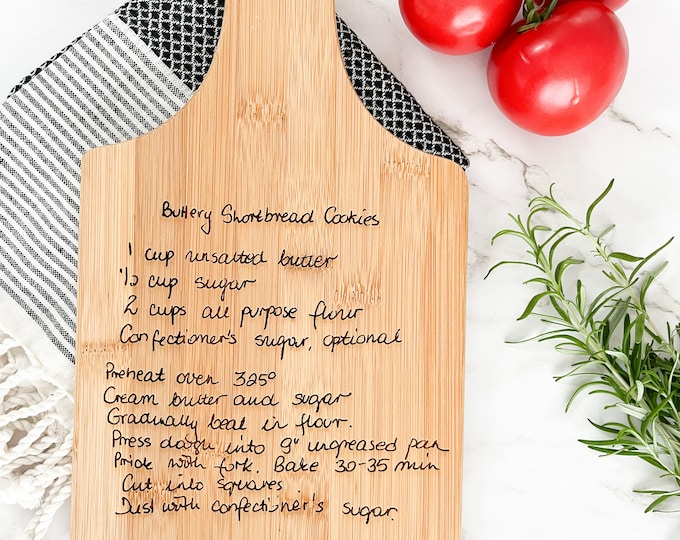 Buttery Shortbread Cookies
1 cup unsalted butter
1/2 cup sugar
2 cups all purpose flour
Confectioner's sugar, optional
Preheat oven 325°
Cream butter and sugar
Gradually beat in flour.
Press dough into 9" ungreased pan
Prick with fork. Bake 30-35 min
Cut into squares
Dust with confectioner's sugar.